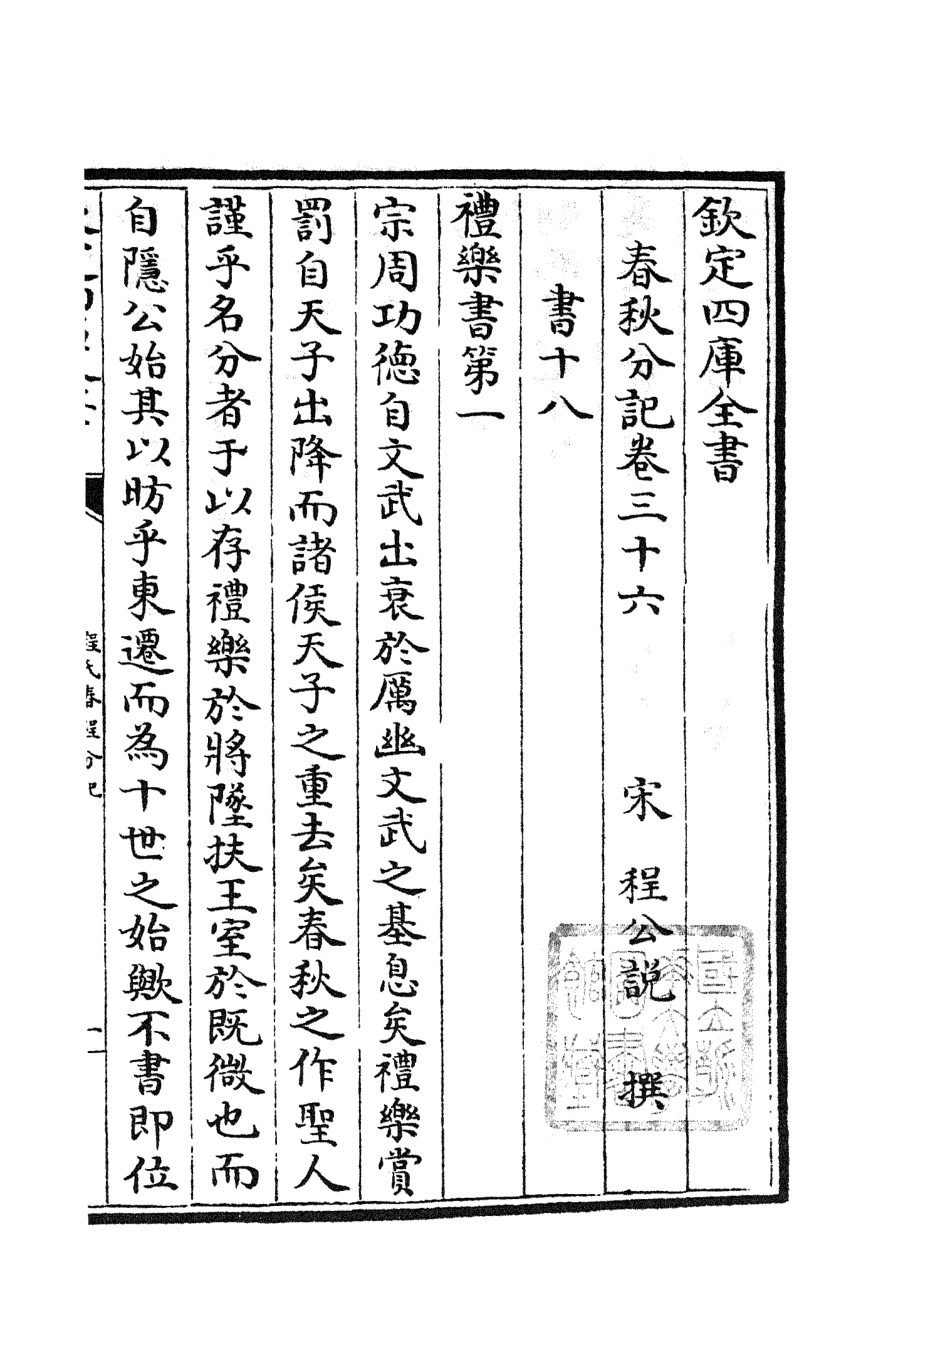 欽定四庫全書
春秋分記卷三十六　宋　程公説　撰
書十八
禮樂書第一
宗周功德自文武出衰於厲幽文武之基息矣禮樂賞
罰自天子出降而諸侯天子之重去矣春秋之作聖人
謹乎名分者于以存禮樂於將墜扶王室於既微也而
自隱公始其以昉乎東遷而為十世之始歟不書即位